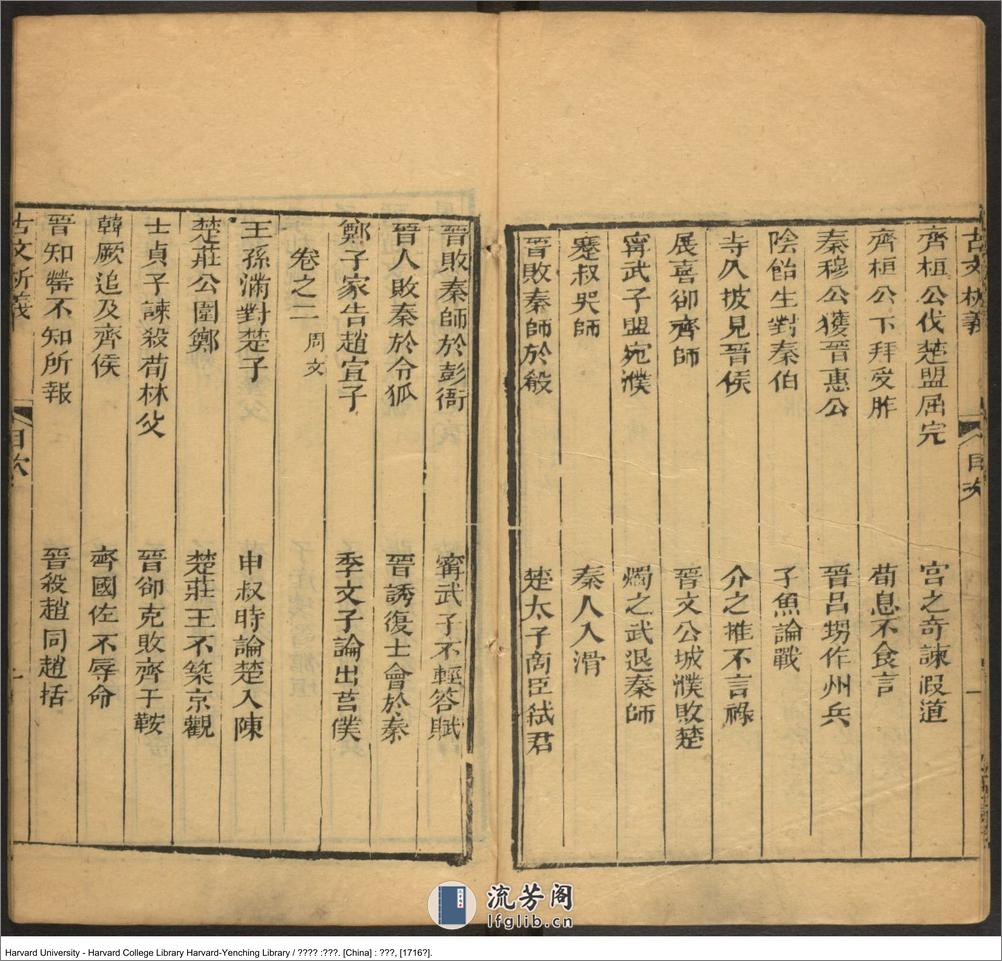 古文析義
目次
一
齊桓公伐楚盟屈完 宮之奇諫假道
齊桓公下拜受胙 荀息不食言
秦穆公獲晉惠公 晉呂甥作州兵
陰飴生對秦伯 子魚論戰
寺人披見晉侯 介之推不言祿
展喜卻齊師 晉文公城濮敗楚
甯武子盟宛濮 燭之武退秦師
蹇叔哭師 秦人入滑
晉敗秦師於殽 楚太子商臣弒君
晉敗秦師於彭衙 甯武子不輕答賦
晉人敗秦於令狐 晉誘復士會於秦
鄭子家告趙宣子 季文子論出莒僕
卷之二 周文
王孫滿對楚子 申叔時論楚入陳
楚莊公圍鄭 楚莊王不築京觀
士貞子諫殺荀林父 晉卻克敗齊于鞍
韓厥追及齊侯 齊國佐不辱命
晉知罃不知所報 晉殺趙同趙括
古文析義
目次
流芳阁
lfglib.cn
Harvard University - Harvard College Library Harvard-Yenching Library / ???? :???. [China] : ???, [1716?].